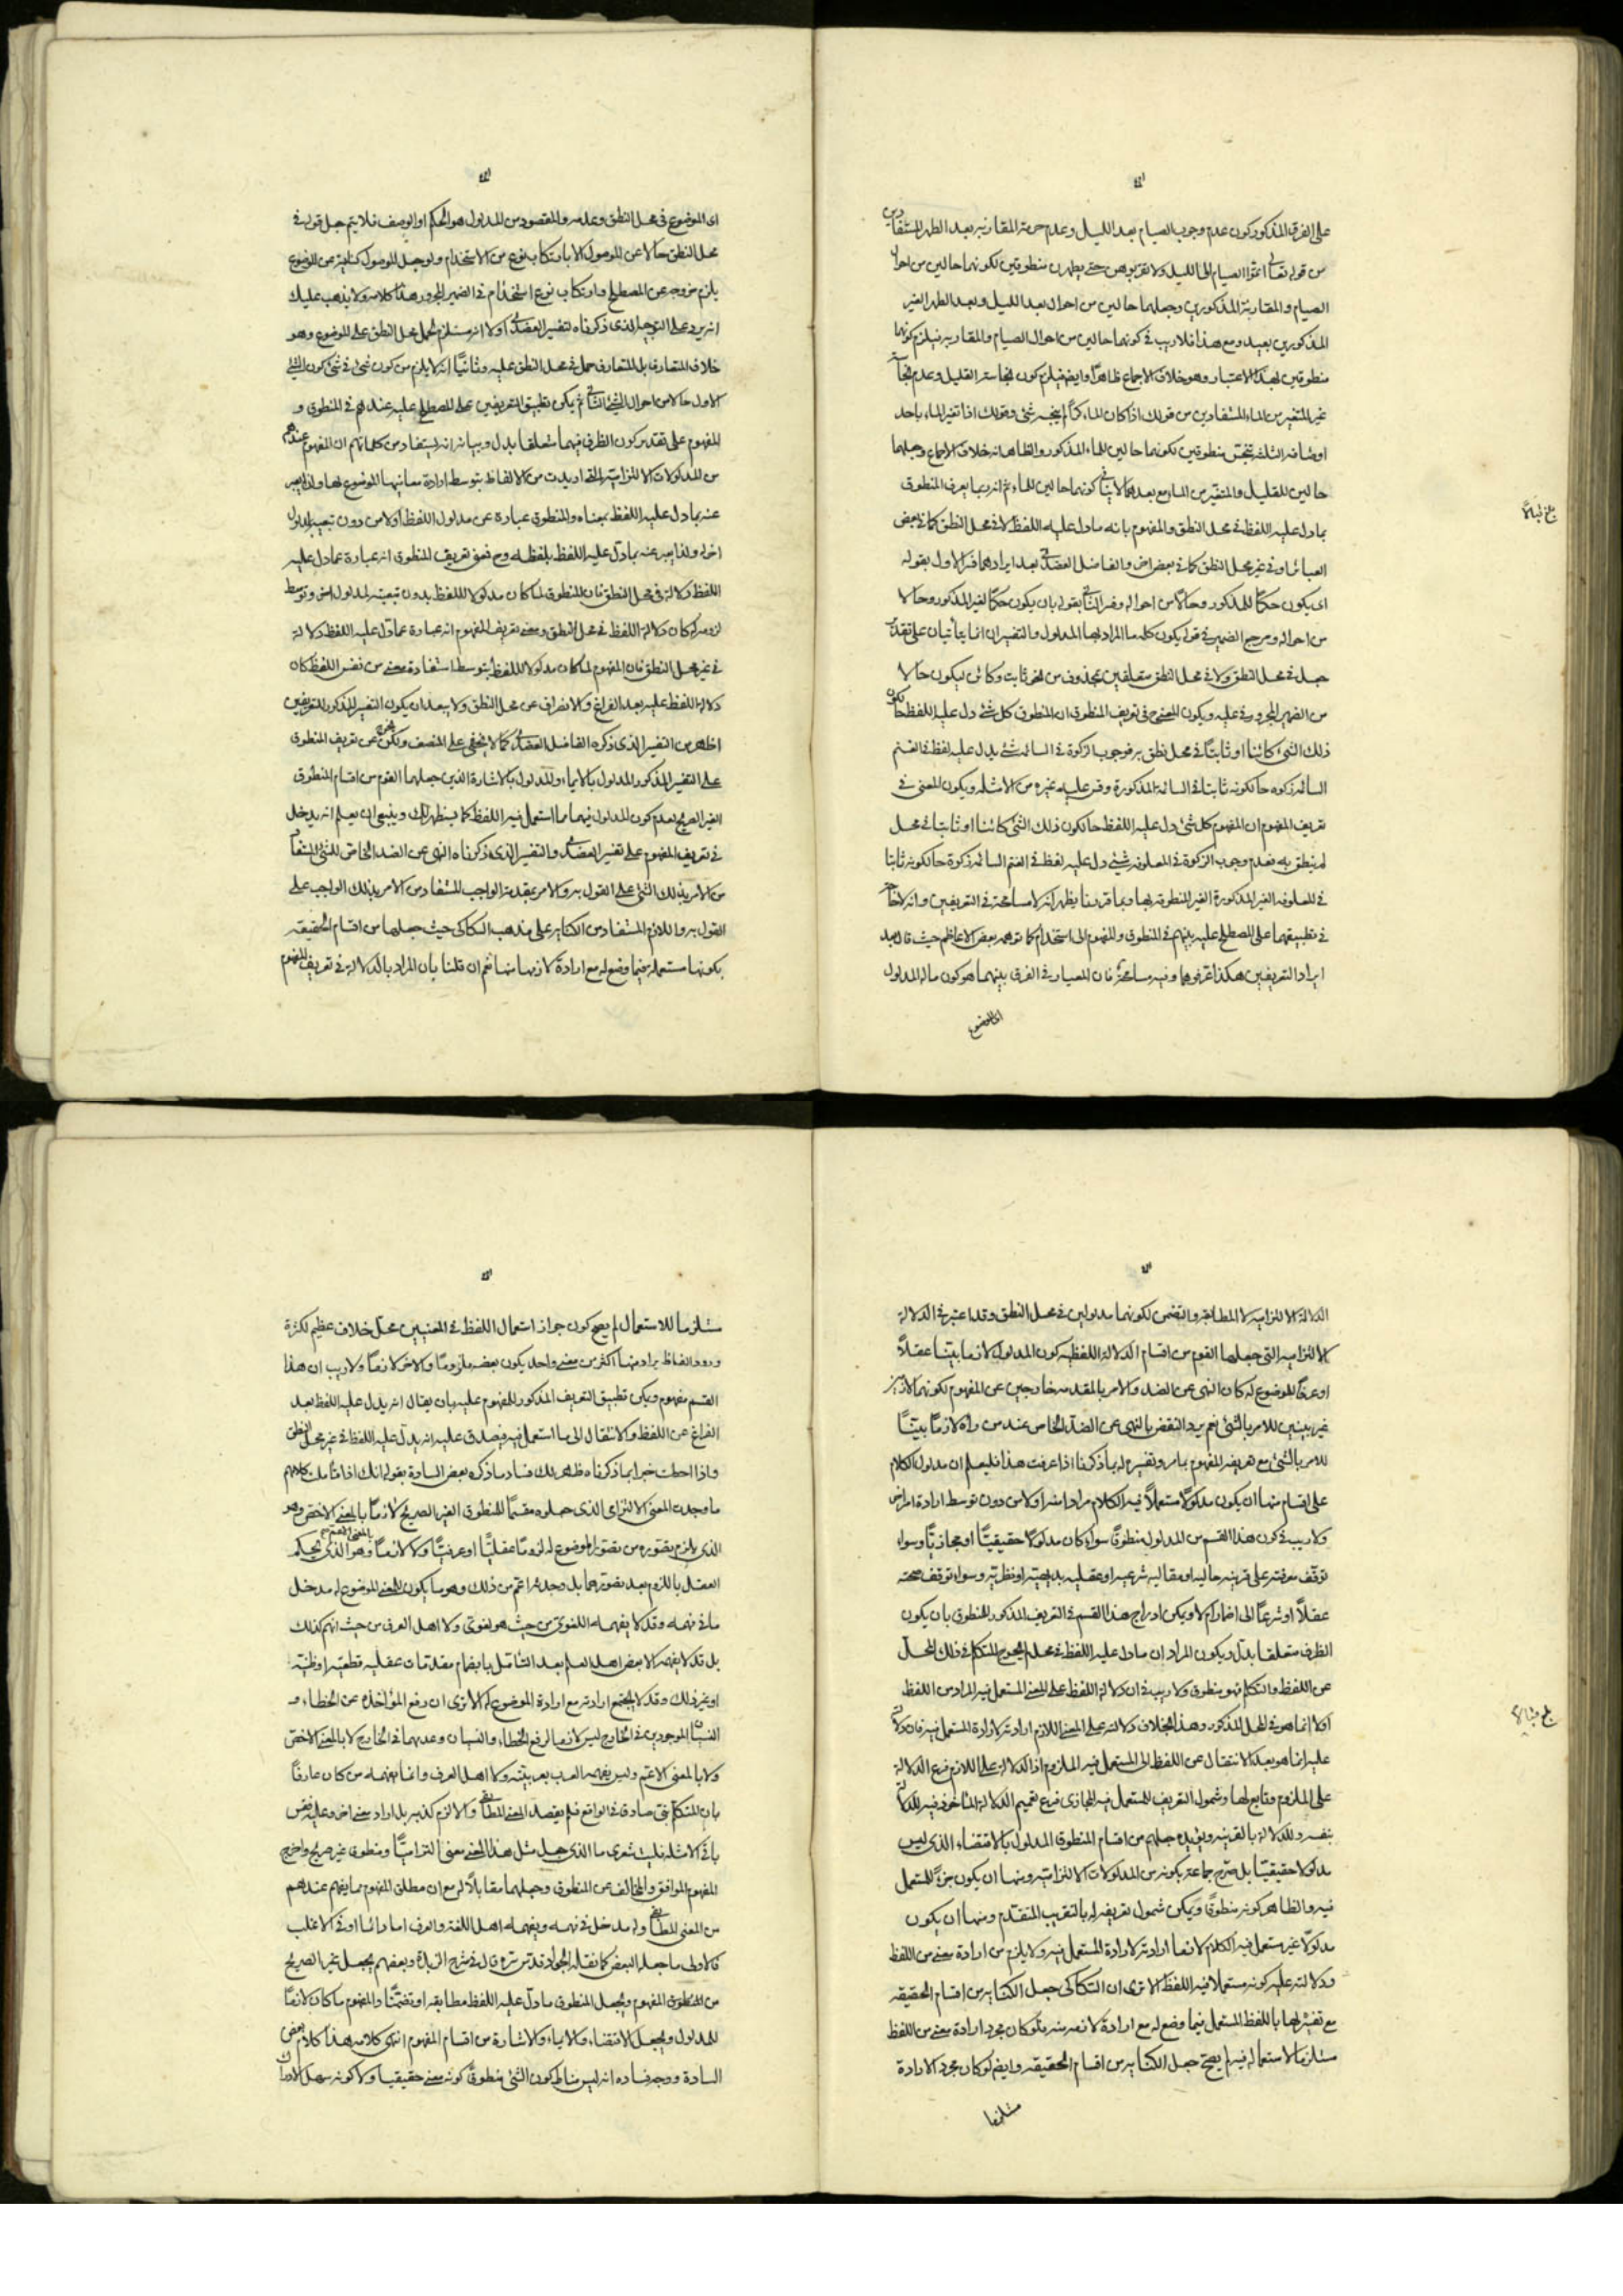 على الفرق المذكور كون عدم وجوب الصيام بعد الليل وعدم حرمة المقاربة بعد الطهر المستفادين
من قوله تعالى اتموا الصيام الى الليل ولا تقربوهن حتى يطهرن منطوقين لكونهما حالين من احوال
الصيام والمقاربة المذكورين وجعلهما حالين من احوال بعد الليل وبعد الطهر الغير
المذكورين بعيد ومع هذا فلا ريب في كونهما حالين من احوال الصيام والمقاربة فيلزم كونهما
منطوقين بهذا الاعتبار وهو خلاف الاجماع ظاهرا وايضا فيلزم كون نجاسة القليل وعدم نجاسة
غير المتغير من الماء المستفادين من قولك اذا كان الماء كرا لم ينجسه شئ وقولك اذا تغير الماء باحد
اوصافه الثلثة تنجس منطوقين لكونهما حالين للماء المذكور والظاهر انه خلاف الاجماع وجعلهما
حالين للقليل والمتغير من الماء مع بعدهما لا ينافي كونهما حالين للماء ثم انه ربما يعرف المنطوق
بما دل عليه اللفظ في محل النطق والمفهوم بانه ما دل عليه اللفظ لا في محل النطق كما في بعض
العبائر او في غير محل النطق كما في بعض اخر والفاضل العضدي بعد ايرادهما فسر الاول بقوله
اى يكون حكما للمذكور وحالا من احواله وفسر الثاني بقوله بان يكون حكما لغير المذكور وحالا
من احواله ومرجع الضمير في قوله يكون كلمة ما المراد بها المدلول والتفسيران انما يتأتيان على تقدير
جعل في محل النطق ولا في محل النطق متعلقين بمحذوف من نحو ثابت وكائن ليكون حالا
من الضمير المجرور في عليه ويكون المعنى في تعريف المنطوق ان المنطوق كل شئ دل عليه اللفظ حالكون
ذلك الشئ كائنا او ثابتا في محل نطق به فوجوب الزكوة في السائمة شئ يدل عليه لفظ في الغنم
السائمة زكوة حالكونه ثابتا في السائمة المذكورة وقس عليه غيره من الامثلة ويكون المعنى في
تعريف المفهوم ان المفهوم كل شئ دل عليه اللفظ حالكون ذلك الشئ كائنا او ثابتا في محل
لم ينطق به فعدم وجوب الزكوة في المعلوفة شئ دل عليه لفظ في الغنم السائمة زكوة حالكونه ثابتا
في المعلوفة الغير المذكورة الغير المنطوقة بها وبما قررنا يظهر انه لا مسامحة في التعريفين وانه لا حاجة
في تطبيقهما على المصطلح عليه بينهم في المنطوق والمفهوم الى استخدام كما توهمه بعض الاعاظم حيث قال بعد
ايراد التعريفين هكذا عرفوهما وفيه مسامحة فان المعيار في الفرق بينهما هو كون ما له المدلول
اى الموضوع
اى الموضوع في محل النطق وعدمه والمقصود من المدلول هو الحكم او الوصف فلا يتم جعل قوله في
محل النطق حالا عن الموصول الا بارتكاب نوع من الاستخدام ولو جعل الموصول كناية عن الموضوع
يلزم خروجه عن المصطلح وارتكاب نوع استخدام في الضمير المجرور هذا كلامه ولا يذهب عليك
انه يرد على التوجيه الذى ذكرناه لتفسير العضدي اولا انه مستلزم لحمل محل النطق على الموضوع وهو
خلاف المتعارف بل المتعارف حمل في محل النطق عليه وثانيا انه لا يلزم من كون شئ في شئ كون الشئ
الاول حالا من احوال الشئ الثاني ثم يمكن تطبيق التعريفين على المصطلح عليه عندهم في المنطوق و
المفهوم على تقدير كون الظرف فيهما متعلقا بدل وبيانه انه يستفاد من كلماتهم ان المفهوم عندهم
من المدلولات الالتزامية التى اريدت من الالفاظ بتوسط ارادة معانيها الموضوع لها ولذا يعبر
عنه بما دل عليه اللفظ بمعناه والمنطوق عبارة عن مدلول اللفظ اولا من دون تبعية لمدلول
اخر ولذا يعبر عنه بما دل عليه اللفظ بلفظه وح فمعنى تعريف المنطوق انه عبارة عما دل عليه
اللفظ دلالة في محل النطق فان المنطوق لما كان مدلولا للفظ بدون تبعية لمدلول اخر وتوسط
لزومه له كان دلالة اللفظ في محل النطق ومعنى تعريف المفهوم انه عبارة عما دل عليه اللفظ دلالة
في غير محل النطق فان المفهوم لما كان مدلولا للفظ بتوسط استفادة معنى من نفس اللفظ كان
دلالة اللفظ عليه بعد الفراغ والانصراف عن محل النطق ولا يبعد ان يكون التفسير المذكور للتعريفين
اظهر من التفسير الذى ذكره الفاضل العضدي كما لا يخفى على المنصف ولكن يخرج عن تعريف المنطوق
على التفسير المذكور المدلول بالايماء والمدلول بالاشارة الذين جعلهما القوم من اقسام المنطوق
الغير الصريح لعدم كون المدلول فيهما مما استعمل فيه اللفظ كما سيظهر لك وينبغي ان يعلم انه يدخل
في تعريف المفهوم على تفسير العضدي والتفسير الذى ذكرناه النهى عن الضد الخاص للشئ المستفاد
من الامر بذلك الشئ على القول به والامر بمقدمة الواجب المستفاد من الامر بذلك الواجب على
القول به واللازم المستفاد من الكناية على مذهب السكاكى حيث جعلها من اقسام الحقيقة
بكونها مستعملة فيما وضع له مع ارادة لازمها منها نعم ان قلنا بان المراد بالدلالة في تعريف المفهوم
الدلالة الالتزامية لا المطابقة والتضمن لكونهما مدلولين في محل النطق وقد اعتبر في الدلالة
الالتزامية التى جعلها القوم من اقسام الدلالة اللفظية كون المدلول لازما بينا عقلا
او عرفا للموضوع له كان النهى عن الضد والامر بالمقدمة خارجين عن المفهوم لكونهما لازمين
غير بينين للامر بالشئ نعم يرد النقض بالنهى عن الضد الخاص عند من رآه لازما بينا
للامر بالشئ مع تعريفه المفهوم بما مر وتفسيره له بما ذكرنا اذا عرفت هذا فليعلم ان مدلول الكلام
على اقسام منها ان يكون مدلولا مستعملا فيه الكلام مرادا منه اولا من دون توسط ارادة امر اخر
ولا ريب في كون هذا القسم من المدلول منطوقا سواء كان مدلولا حقيقيا او مجازيا وسواء
توقف معرفته على قرينة حالية او مقالية شرعية او عقلية بديهية او نظرية وسواء توقف صحته
عقلا او شرعا الى اضمار ام لا ويمكن ادراج هذا القسم في التعريف المذكور للمنطوق بان يكون
الظرف متعلقا بدل ويكون المراد ان ما دل عليه اللفظ في محل المتكلم في ذلك المحل
عن اللفظ والتكلم فهو منطوق ولا ريب في ان دلالة اللفظ على المعنى المستعمل فيه المراد من اللفظ
اولا انما هو في المحل المذكور وهذا بخلاف دلالته على المعنى اللازم ارادته لارادة المستعمل فيه فان دلالته
عليه انما هو بعد الانتقال عن اللفظ الى المستعمل فيه الملزوم اذ الدلالة على اللازم فرع الدلالة
على الملزوم وتابع لها وشمول التعريف للمستعمل فيه المجازى فرع تعميم الدلالة الماخوذ فيه للدلالة
بنفسه وللدلالة بالقرينة ويؤيده جعلهم من اقسام المنطوق المدلول بالاقتضاء الذى ليس
مدلولا حقيقيا بل صرح جماعة بكونه من المدلولات الالتزامية ومنها ان يكون جزءا للمستعمل
فيه والظاهر كونه منطوقا ويمكن شمول تعريفه له بالتقريب المتقدم ومنها ان يكون
مدلولا غير مستعمل فيه الكلام لازما ارادته لارادة المستعمل فيه ولا يلزم من ارادة معنى من اللفظ
ودلالته عليه كونه مستعملا فيه اللفظ الا ترى ان السكاكى جعل الكناية من اقسام الحقيقة
مع تفسيره لها باللفظ المستعمل فيما وضع له مع ارادة لازمه منه فلو كان مجرد ارادة معنى من اللفظ
مستلزما لاستعماله فيه لم يصح جعل الكناية من اقسام الحقيقة وايضا لو كان مجرد الارادة
مستلزما
مستلزما للاستعمال لم يصح كون جواز استعمال اللفظ في المعنيين محل خلاف عظيم لكثرة
ورود الفاظ يراد منها اكثر من معنى واحد يكون بعضه ملزوما والاخر لازما ولا ريب ان هذا
القسم مفهوم ويمكن تطبيق التعريف المذكور للمفهوم عليه بان يقال انه يدل عليه اللفظ بعد
الفراغ عن اللفظ والانتقال الى ما استعمل فيه فيصدق عليه انه يدل عليه اللفظ في غير محل النطق
واذا احطت خبرا بما ذكرناه ظهر لك فساد ما ذكره بعض السادة بقوله انك اذا تأملت كلامهم
ما وجدت المعنى الالتزامى الذى جعلوه مقسما للمنطوق الغير الصريح لازما بالمعنى الاخص وهو
الذى يلزم تصوره من تصور الموضوع له لزوما عقليا او عرفيا ولا لازما بالمعنى الاعم وهو الذى يحكم
العقل باللزوم بعد تصورهما بل وجدته اعم من ذلك وهو ما يكون للمعنى الموضوع له مدخل
ما في فهمه وقد لا يفهمه اللغوى من حيث هو لغوى ولا اهل العرف من حيث انهم كذلك
بل قد لا يفهمه الا بعض اهل العلم بعد التأمل بانضمام مقدمات عقلية قطعية او ظنية
او غير ذلك وقد لا يجتمع ارادته مع ارادة الموضوع له الا ترى ان رفع المؤاخذة عن الخطاء و
النسيان الموجودين في الخارج ليس لازما لرفع الخطاء والنسيان وعدمهما في الخارج لا بالمعنى الاخص
ولا بالمعنى الاعم وليس يفهمه العرب بعربيته ولا اهل العرف وانما يفهمه من كان عارفا
بان المتكلم نبى صادق في الواقع فلم يقصد المعنى المطابقى والا لزم كذبه بل اراد معنى اخر وعليه فقس
باقى الامثلة فليت شعرى ما الذى جعل مثل هذا المعنى معنى التزاميا ومنطوق غير صريح واخرج
المفهوم الموافق والمخالف عن المنطوق وجعلهما مقابلا له مع ان مطلق المفهوم مما يفهم عندهم
من المعنى المطابقى وله مدخل في فهمه ويفهمه اهل اللغة والعرف اما دائما او في الاغلب
فالاولى ما جعله البعض كما نقله الجواد قدس سره قال في شرح الزبدة وبعضهم يجعل غير الصريح
من المنطوق المفهوم ويجعل المنطوق ما دل عليه اللفظ مطابقة او تضمنا والمفهوم ما كان لازما
للمدلول ويجعل الاقتضاء والايماء والاشارة من اقسام المفهوم انتهى كلامه هذا كلام بعض
السادة ووجه فساده انه ليس مناط كون الشئ منطوقا كونه معنى حقيقيا ولا كونه سهل الادراك